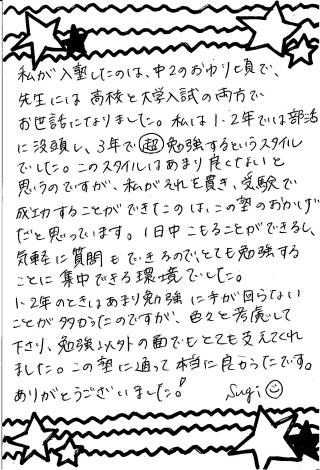 私が入塾したのは、中2のおわり頃で、
先生には高校と大学入試の両方で
お世話になりました。私は1・2年では部活
に没頭し、3年で超勉強するというスタイル
でした。このスタイルはあまり良くないと
思うのですが、私がそれを貫き、受験で
成功することができたこのは、この塾のおかげ
だと思っています。1日中こもることができるし、
気軽に質問もできるので、とても勉強する
ことに集中できる環境でした。
1・2年のときはあまり勉強に手が回らない
ことが多かったのですが、色々と考慮して
下さり、勉強以外の面でもとても支えてくれ
ました。この塾に通って本当に良かったです。
ありがとうございました!
Sugi